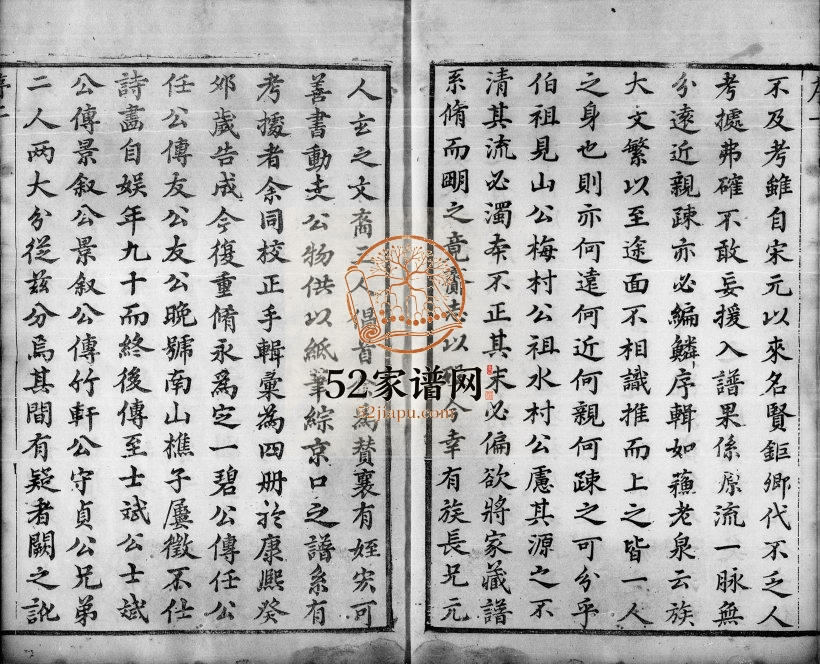 序一
不及考雖自宋元以來名賢鉅卿代不乏人
考據弗確不敢妄援入譜果係原流一脉無
分遠近親疎亦必編鱗序輯如蘓老泉云族
大文繁以至途面不相識推而上之皆一人
之身也則亦何遠何近何親何疎之可分乎
伯祖見山公梅村公祖水村公慮其源之不
清其流必濁夲不正其末必偏欲將家藏譜
系脩而明之竟賫志以 幸有族長兄元
人玄之文裔 人 首 為賛襄有姪宍可
善書動支公物供以紙筆綜京口之譜系有
考據者余同校正手輯彙為四册於康熙癸
夘歲告成今復重脩永為定一碧公傳任公
任公傳友公友公晚號南山樵子屢徵不仕
詩畵自娱年九十而終後傳至士斌公士斌
公傳景叙公景叙公傳竹軒公守貞公兄弟
二人两大分從兹分焉其間有疑者闕之訛
序二
52家谱网
52jiapu.com